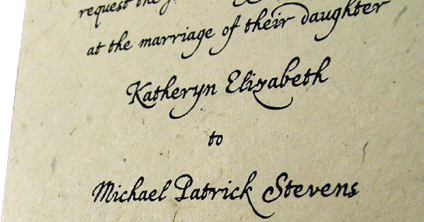 request the
at the marriage of their daughter
Katheryn Elizabeth
to
Michael Patrick Stevens